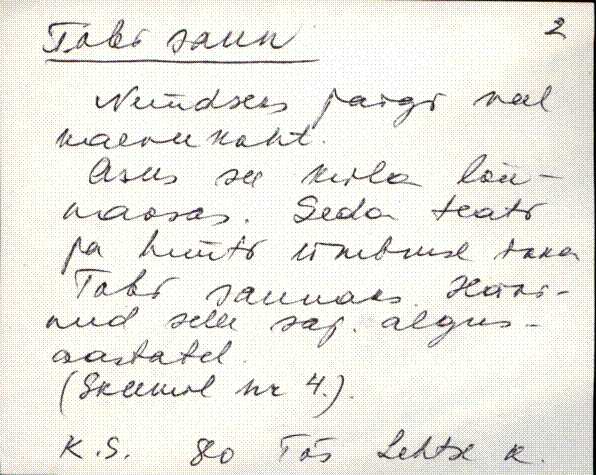 Tobi saun 2
Nüüdseks paigi veel
kaevukoht.
Asus see küla lõu-
naosas. Seda teati
ja hüüti ümbruse
Tobi saunaks. Hävi-
nud selle saj. algus-
aastatel.
(Skeemil nr 4.).
K.S. 80 Lehtse k.